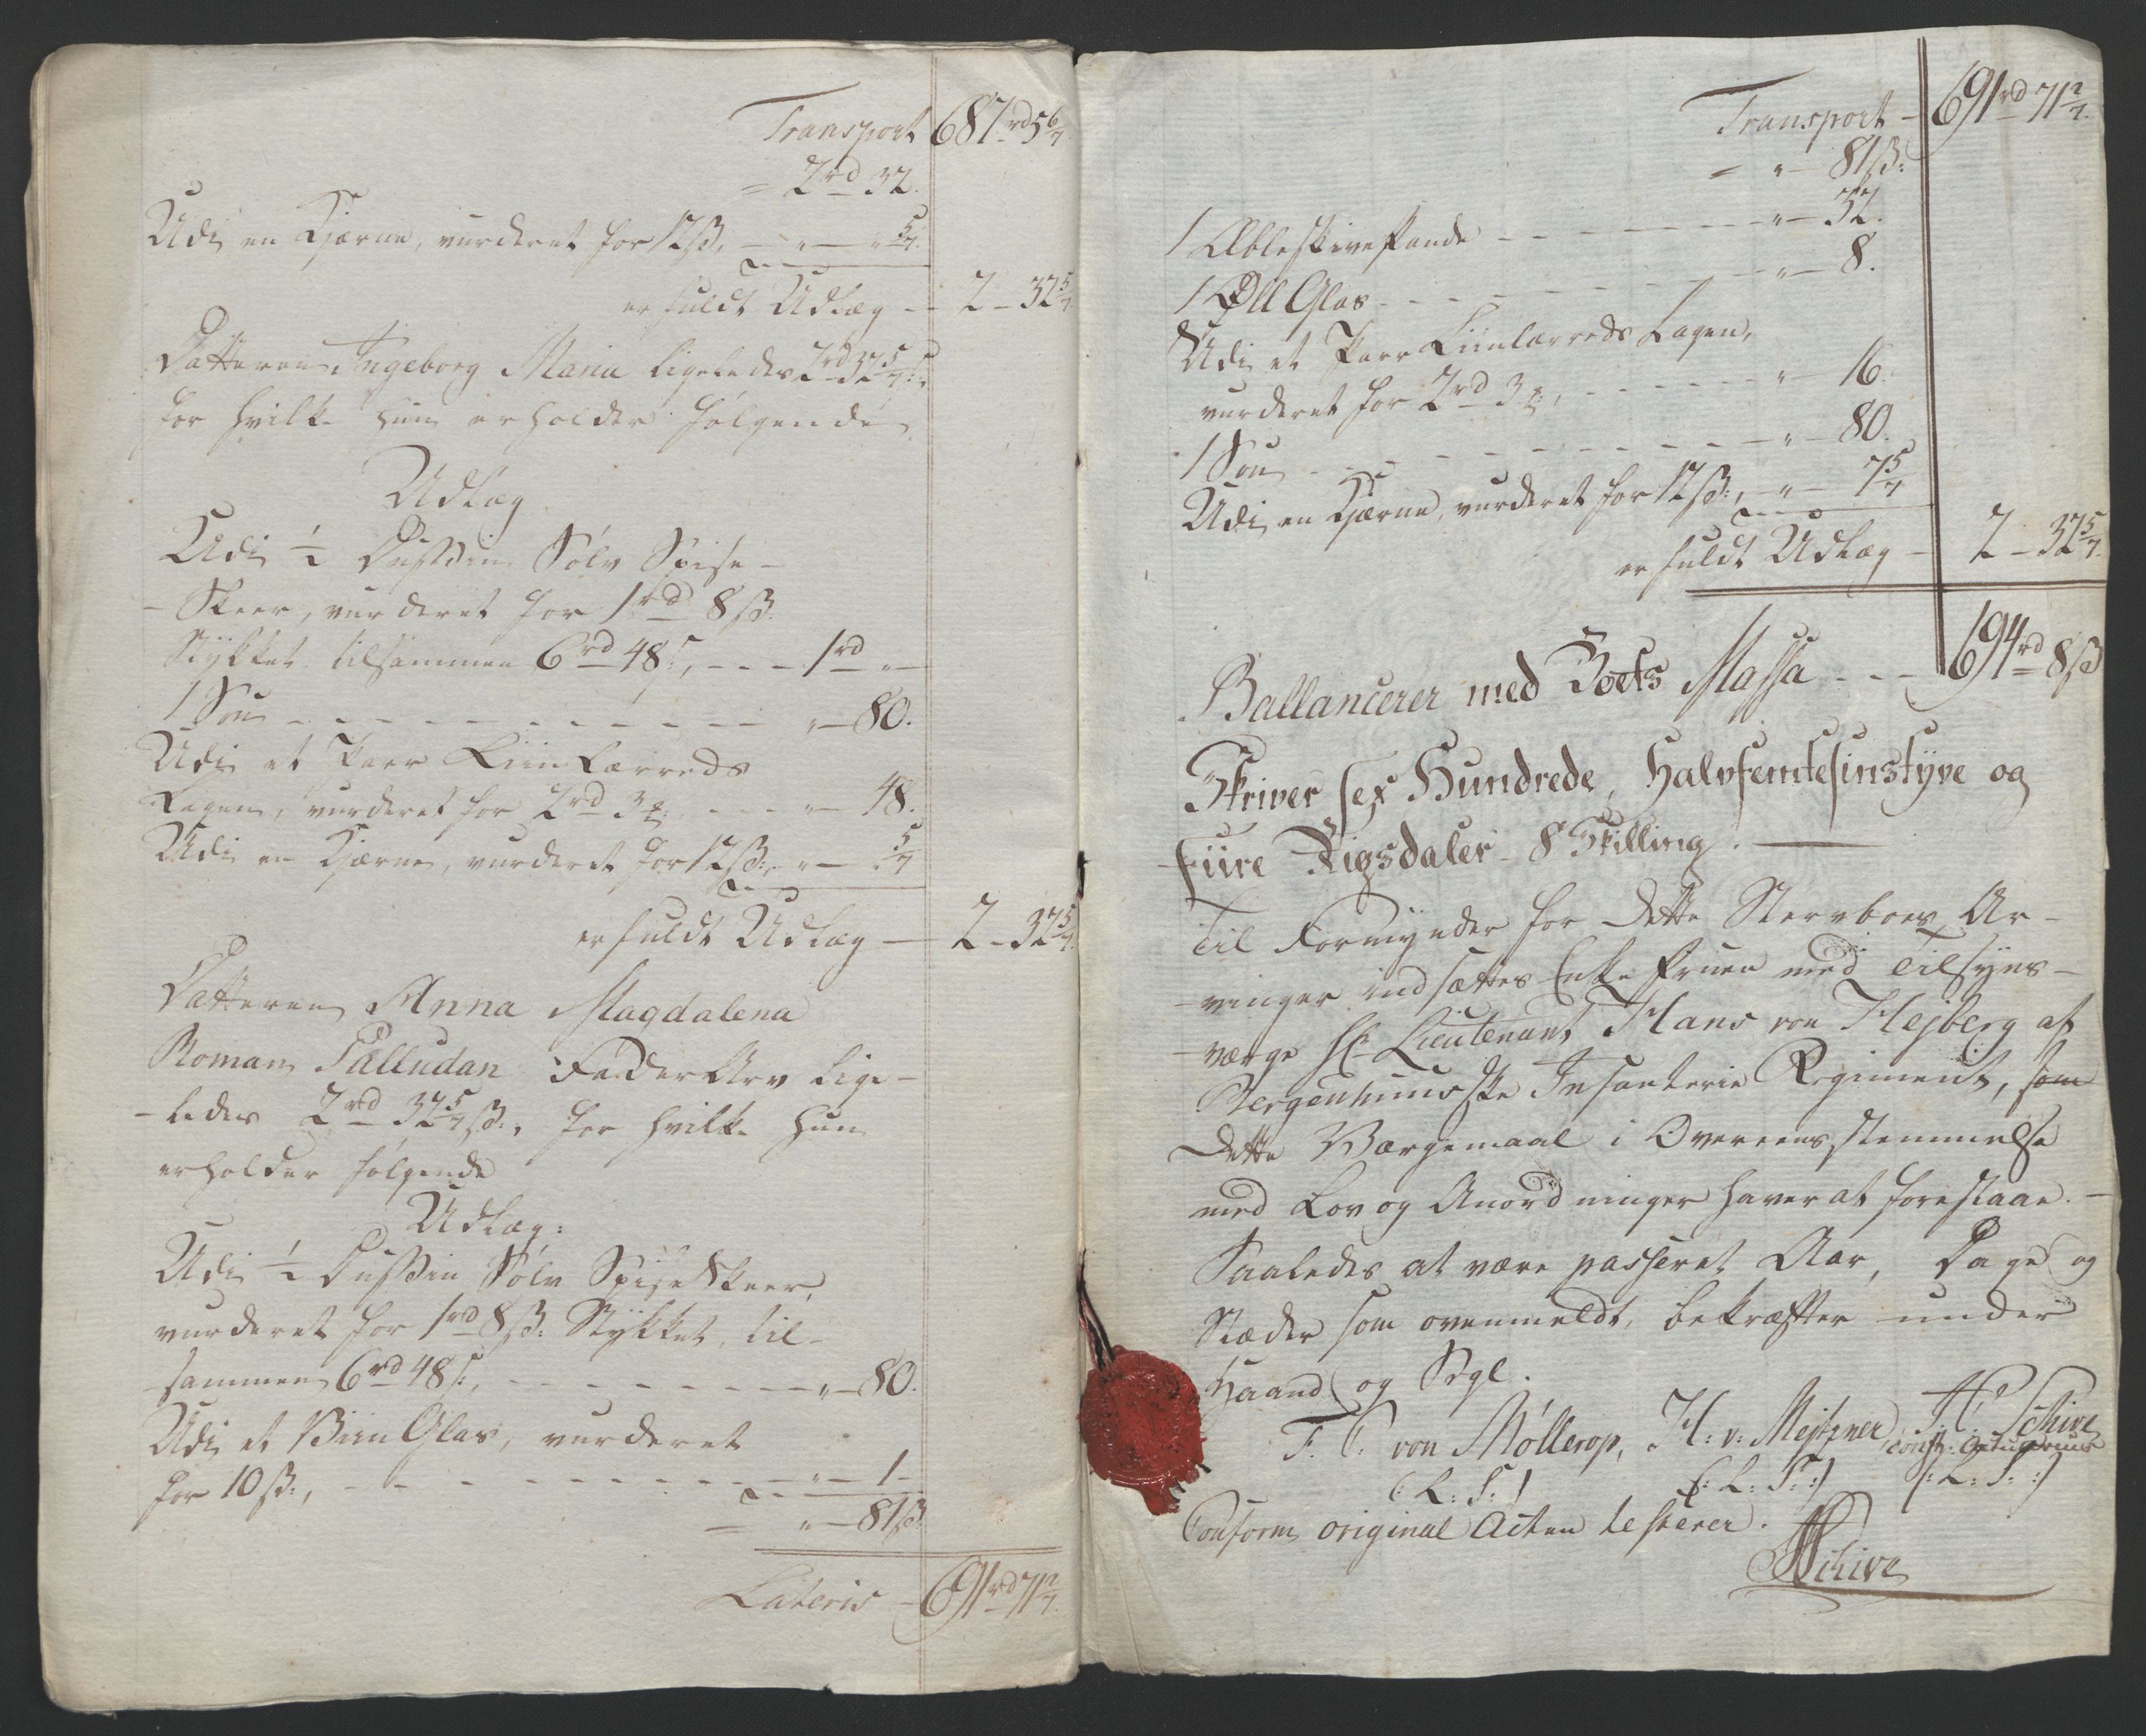 Transport 687rd 5 6/7
= 2rd 32.
Udi en Kjærne, vurderet for 12 ß, - " - " 5/7.
er fuldt Udlæg - 2 - 32 5/7
Datteren Ingeborg Maria ligeledes 2rd 32 5/7 ß:,
for hvilke hun erholder følgende
Udlæg
Udi 1/2 Dussin Sølv Spise-
-Skeer, vurderet for 1rd 8 ß.
Stykket tilsammen 6rd 48 ß:, - - - 1rd " -
1 Soe - - - - - - - - - - " - 80.
Udi et Parr Liin Lærreds
Lagen, vurderet for 2rd 3 ℔:, - - - " - 48.
Udi en Kjærne, vurderet for 12 ß:, - " - " 5/7
er fuldt Udlæg - 2 - 32 5/7.
Datteren Anna Magdalena
Roman Palludan FæderArv lige-
-ledes 2rd 32 5/7 ß:, for hvilke hun
erholder følgende
Udlæg:
Udi 1/2 Dussin Sølv SpiseSkeer,
vurderet for 1rd 8 ß: Stykket, til-
sammen 6rd 48 ß:, - - - - - - - " - 80.
Udi et Viin Glas, vurderet
for 10 ß:, - - - - - - - - - " - 1 -
= " - 81 ß.
Lateris - 691rd 71 2/7.
Transport - 691rd 71 2/7.
= " - 81 ß:
1 Æbleskive Pande - - - - - - " - 32.
1 Øll Glas - - - - - - - - " - 8.
Udi et Parr Liinlærreds Lagen,
vurderet for 2rd 3 ℔:, - - - - - " - 16.
1 Soe - - - - - - - - - " - 80.
Udi en Kjærne, vurderet for 12 ß:, - " - 7 5/7
er fuldt Udlæg - 2 - 32 5/7.
Ballancerer med Boets Massa - - - 694rd 8 ß
Skriver sex Hundrede, Halvfemtesinstyve og
fiire Rigsdaler 8 Skilling. -
Til Formynder for dette Stervboes Ar-
-vinger indsættes Enke Fruen med Tilsyns-
-værge Hr Lieutenant Hans von Hejberg af
Bergenhuusske Infanterie Regiment, som
dette Værgemaal i Overeensstemmelse
med Lov og Anordninger haver at forestaae. -
Saaledes at være passeret Aar, Dage og
Stæder som ovenmeldt, bekræfter under
Haand og Segl.
F. C. von Møllerop, H: v: Mejtzner, H: Schive
const: Actuarius
(: L: S: ) (: L: S: :) (: L: S: :)
Conform original Acten testerer.
HSchive